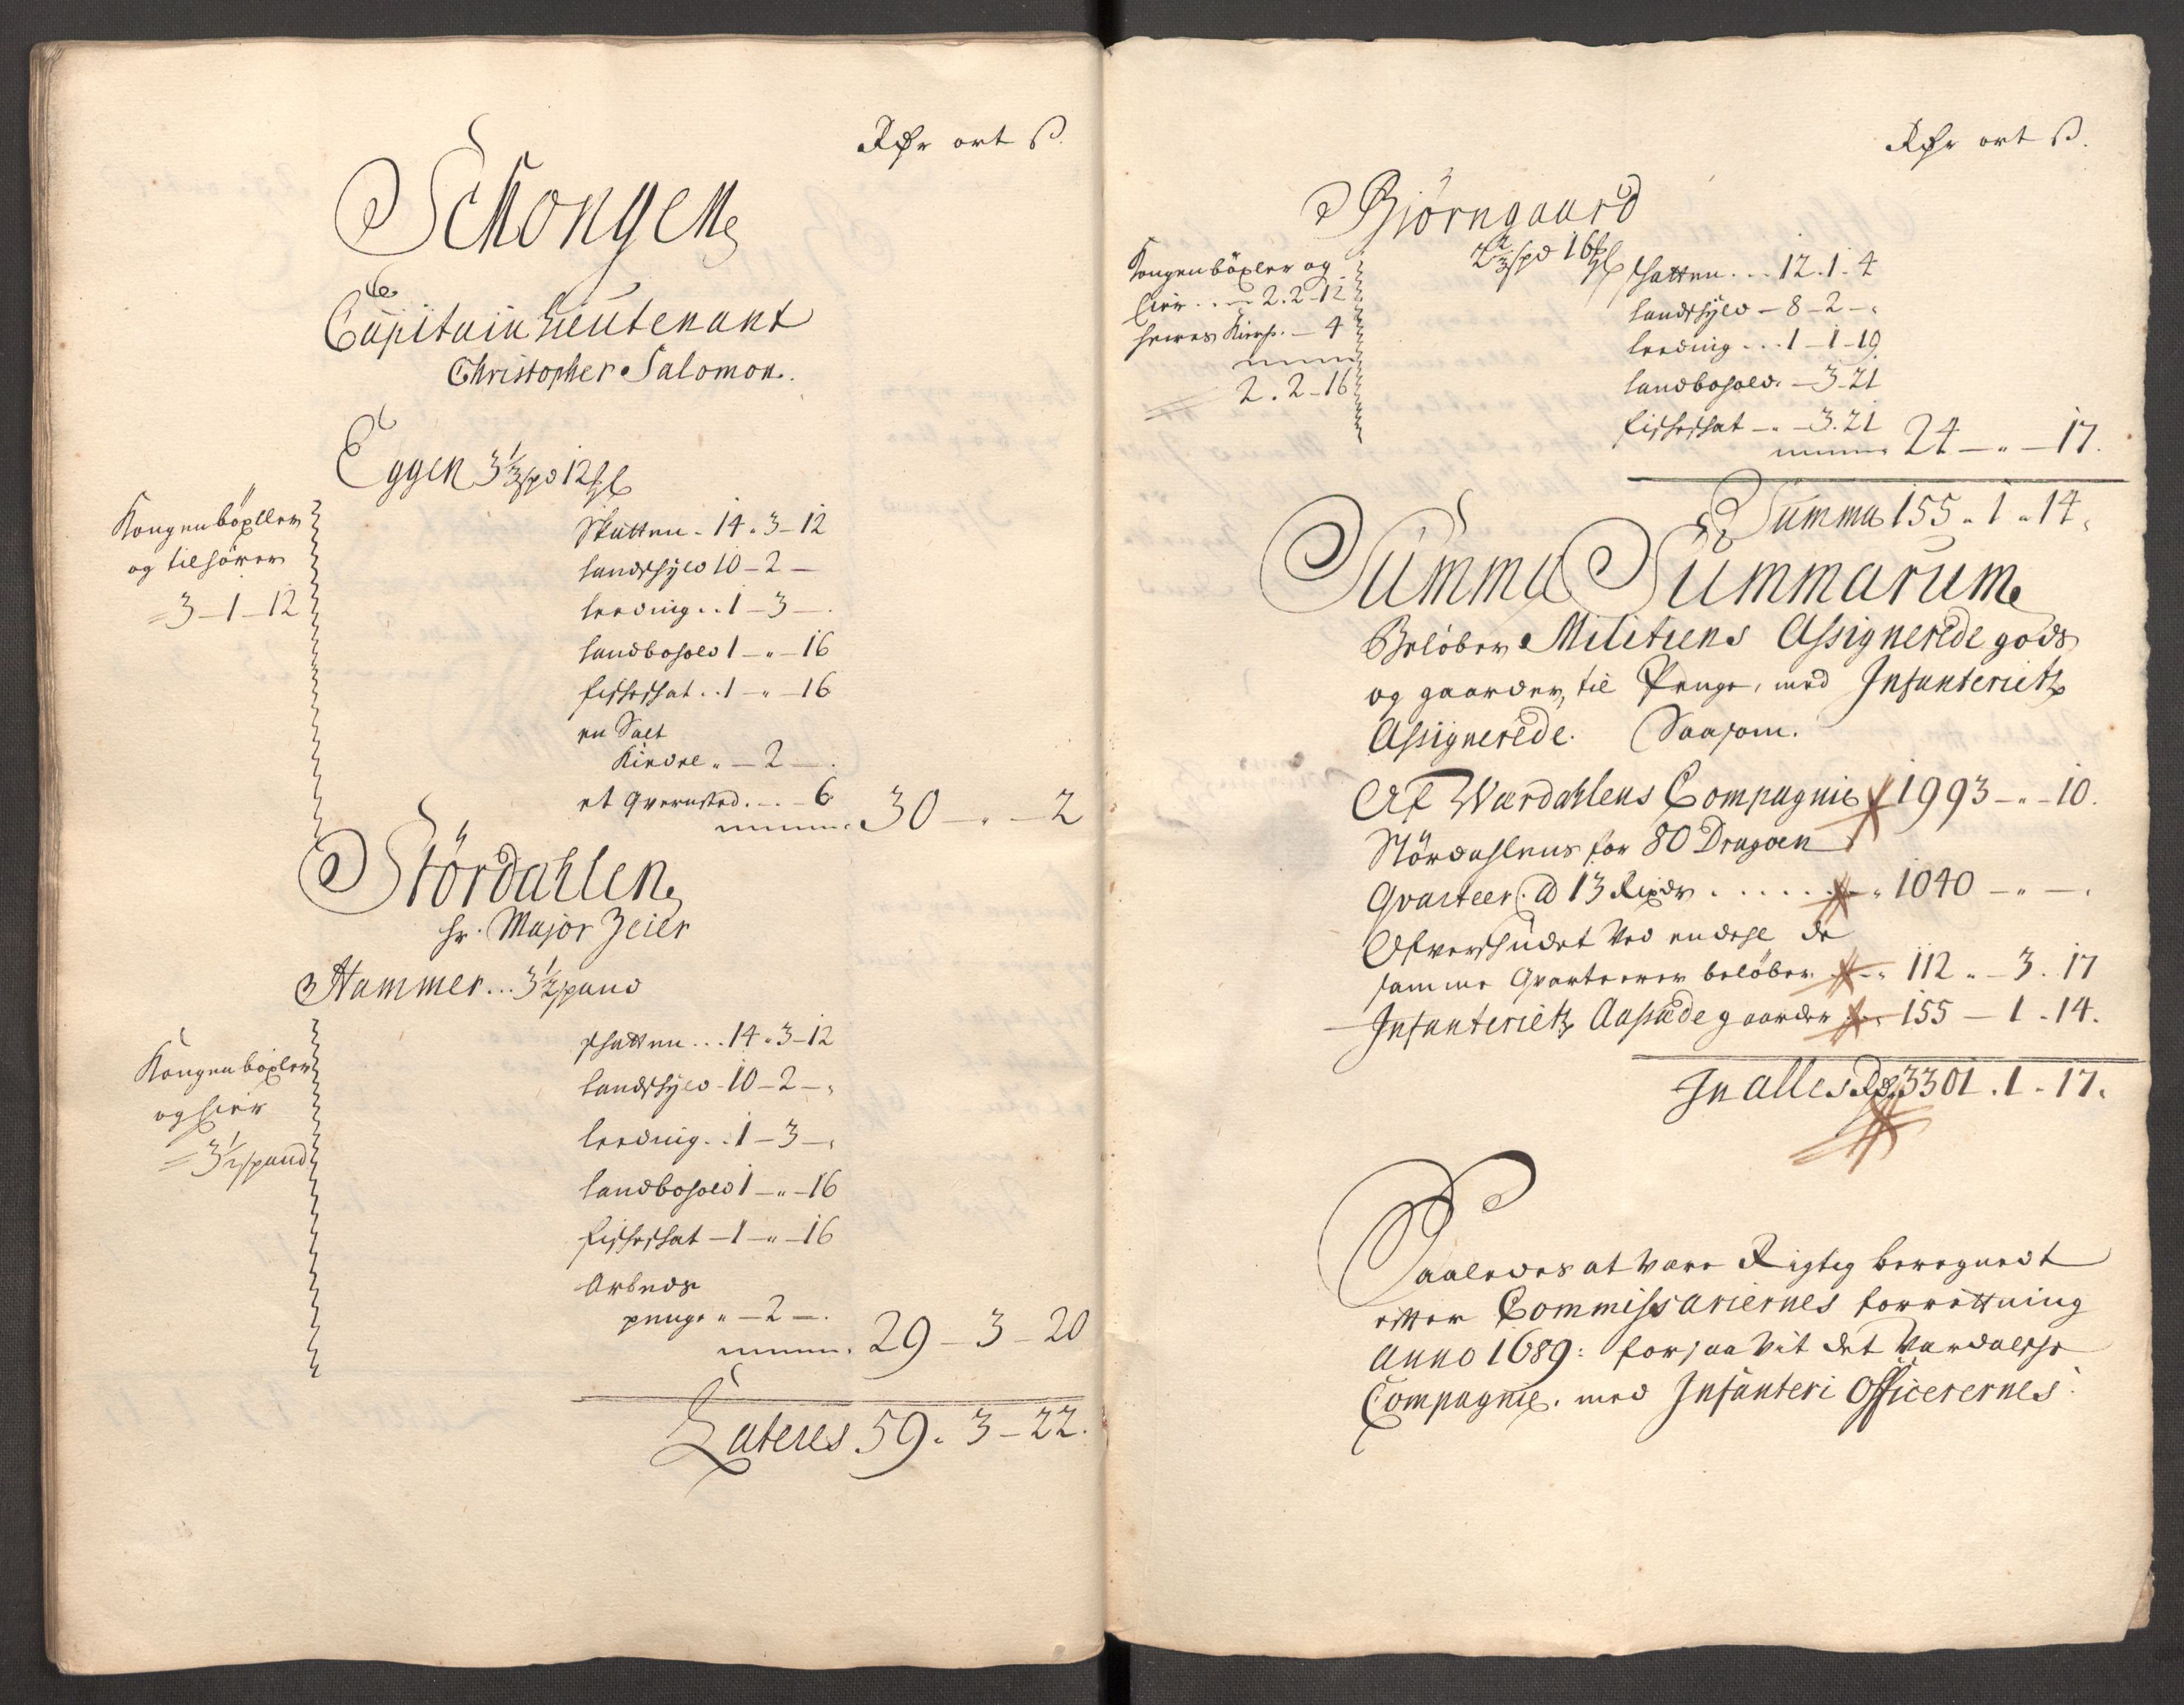 Rdr ort s.
Schongen
Capitain Lieutenant
Christopher Salomon.
Eggen 3 1/3 spd 12
Kongen böxller
og tilhörer
= 3 - 1 - 12
Skatten - 14 - 3 - 12
landschyld 10 - 2 -
leeding .. 1 - 3 -
landbohold 1 - " - 16
fischeschat .. 1 - " - 16
en Salt
Kiedel " - 2 -
et Qvernsted . - . - 6
30 - " - 2
Stördahlen
hr. Major Zeier
Hammer ... 3 1/2 spand
Kongen böxler
og eier
= 3 1/2 spand
schatten ... 14 - 3 - 12
landschyld - 10 - 2 - "
leeding .. 1 - 3 - "
landbohold 1 - " - 16
fischeschat - 1 - " - 16
Arbeds
penge " - 2 - .
29 - 3 - 20
Lateres 59 - 3 - 22.
Rdr ort s.
Björngaard
2 2/3 spd 16
Kongen böxler og
eier .. - 2. 2 - 12
- 4
2. 2 - 16
schatten ... 12. 1. 4
landschyld - 8 - 2 - "
leeding ... 1 - 1 - 19
landbohold. - 3 - 21
fischeschat - " - 3. 21
24 - " - 17.
Summa 155 " 1 " 14.
Summa Summarum
Belöber Militiens Assignerede gods
og gaarder, til Penge, med Infanteriets
Assignerede. Saasom.
Af Wardahlens Compagnie 1993 - " - 10.
Stördahlens for 80 Dragoen
Qvarteer. a 13 Rixdr ..... 1040 - " - .
Ofverschudet Ved endehl de
samme Qvarteerer belöber " 112 " - 3. 17
Infanteriets gaarder 155 - 1 - 14.
In alles Rd 3301. 1 - 17.
Saaledes at være Rigtig beregnedt
etter Commissariernes forrettning
Anno 1689: forsaa vit det Vardalsche
Compagnie. med Infanteri Officerernes